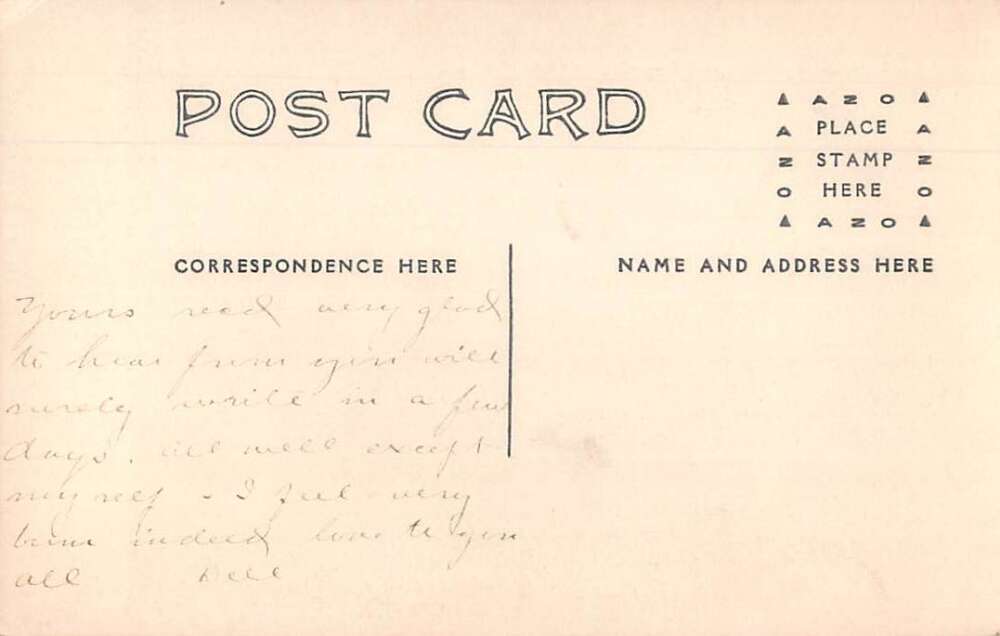 POST CARD
AZO
PLACE
STAMP
HERE
AZO
AZO
AZO
CORRESPONDENCE HERE
NAME AND ADDRESS HERE
Yours recd very glad
to hear from you will
surely write in a few
days. All well except
myself - I feel very
bum indeed love to you
all Dell